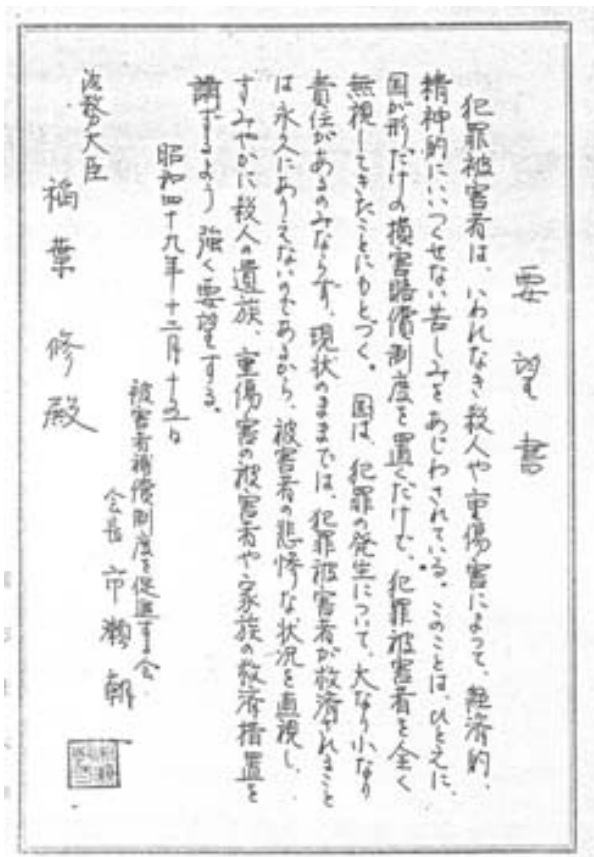 要望書
犯罪被害者は、いわれなき殺人や重傷害によって、経済的、
精神的にいいつくせない苦しみをあじわされている。このことは、ひとえに、
国が形だけの損害賠償制度を置くだけで、犯罪被害者を全く
無視してきたことにもとづく。国は、犯罪の発生について、大なり小なり
責任があるのみならず、現状のままでは、犯罪被害者が救済されること
は永久にありえないのであるから、被害者の悲惨な状況を直視し、
すみやかに殺人の遺族、重傷害の被害者や家族の救済措置を
講ずるよう強く要望する。
昭和四十九年十二月十 日
被害者補償制度を促進する会
会長 市瀬朝
法務大臣
稲葉 修殿